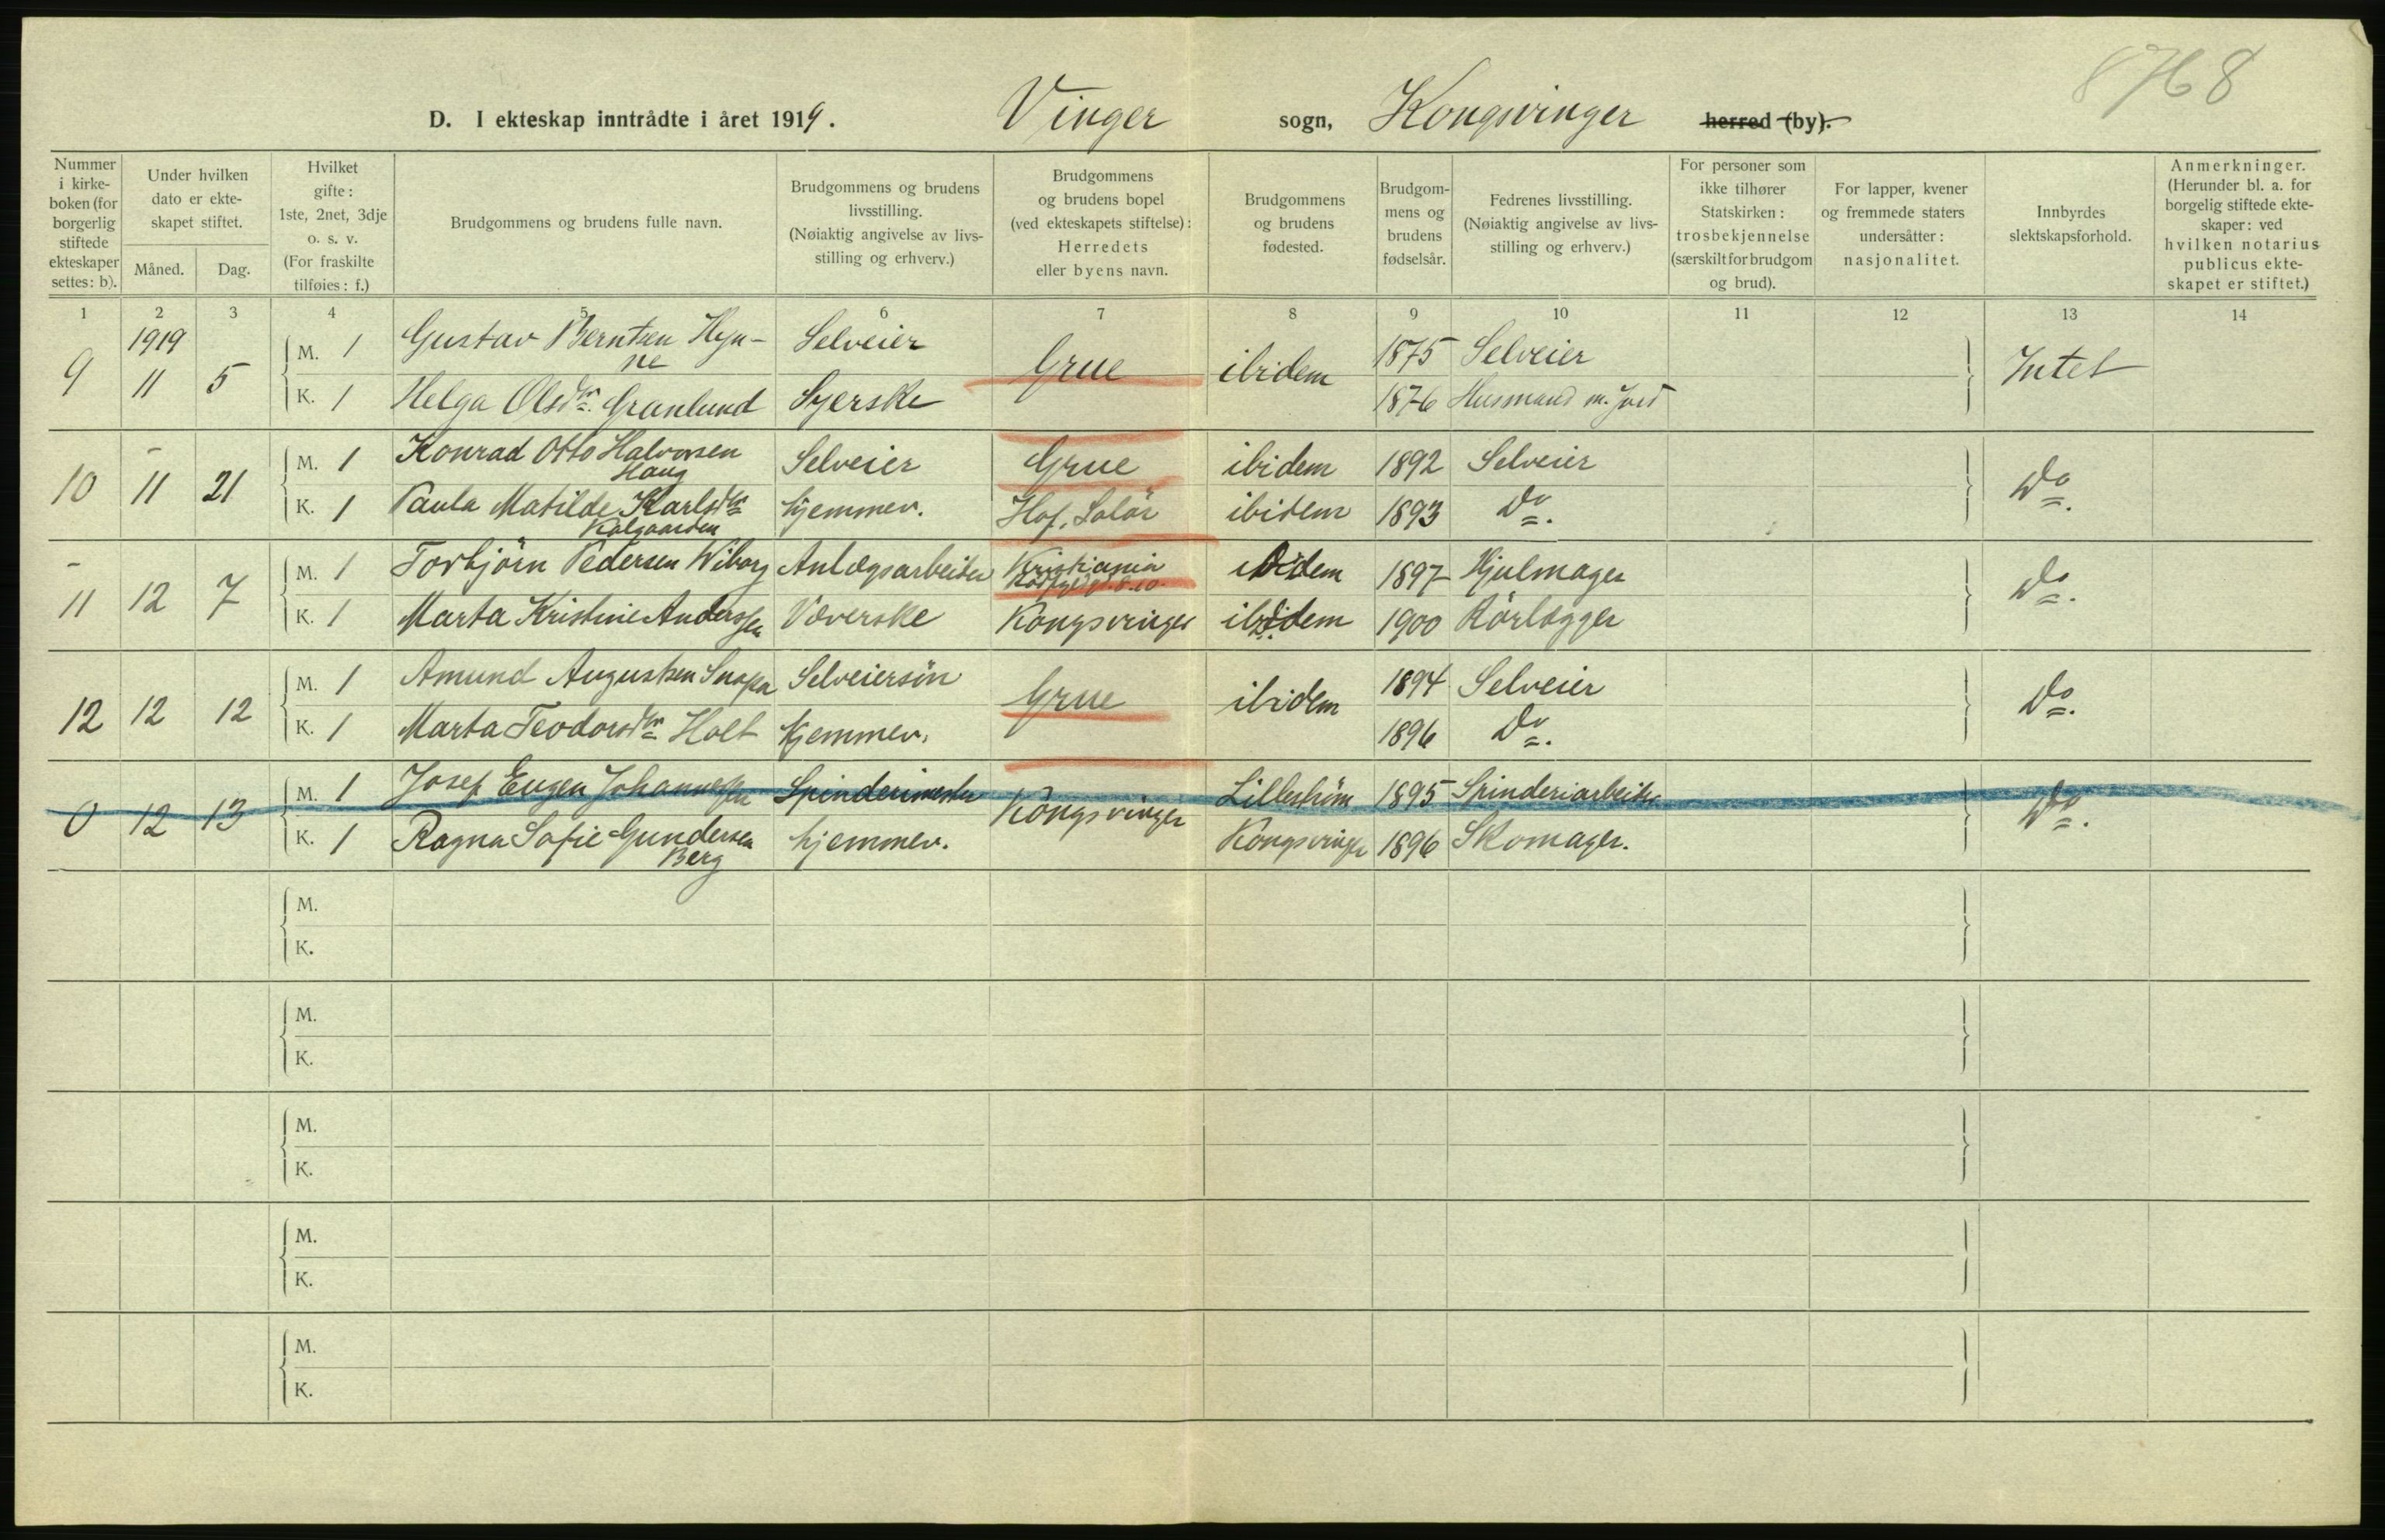 8768
D. I ekteskap inntrådte i året 1919. Vinger sogn, Kongsvinger herred (by).
Nummer i kirke-boken (for borgerlig stiftede ekteskaper settes: b).
Under hvilken dato er ekte-skapet stiftet.
Måned. Dag.
Hvilket gifte: 1ste, 2net, 3dje o. s. v. (For fraskilte tilføies: f.)
Brudgommens og brudens fulle navn.
Brudgommens og brudens livsstilling. (Nøiaktig angivelse av livs-stilling og erhverv.)
Brudgommens og brudens bopel (ved ekteskapets stiftelse): Herredets eller byens navn.
Brudgommens og brudens fødested.
Brudgom-mens og brudens fødselsår.
Fedrenes livsstilling. (Nøiaktig angivelse av livs-stilling og erhverv.)
For personer som ikke tilhører Statskirken: trosbekjennelse (særskilt for brudgom og brud).
For lapper, kvener og fremmede staters undersåtter: nasjonalitet.
Innbyrdes slektskapsforhold.
Anmerkninger. (Herunder bl. a. for borgelig stiftede ekte-skaper: ved hvilken notarius publicus ekte-skapet er stiftet.)
1 2 3 4 5 6 7 8 9 10 11 12 13 14
1919
9 11 5 M. 1 Gustav Berntsen Hyn-ne Selveier Grue ibidem 1875 Selveier Intet
K. 1 Helga Olsdtr. Granlund Syerske 1876 Husmand m. Jord
10 - 11 21 M. 1 Konrad Otto Halvorsen Haug Selveier Grue ibidem 1892 Selveier Do.
K. 1 Paula Matilde Karlsdtr Kalgaarden hjemmev. Hof, Solør ibidem 1893 Do.
- 11 12 7 M. 1 Torbjörn Pedersen Wiborg Anlægsarbeider Kristiania ibidem 1897 Hjulmager Do.
K. 1 Marta Kristine Anderssen Væverske Kongsvinger ibidem 1900 Rörlægger
12 12 12 M. 1 Amund Augustsen Selveiersön Grue ibidem 1894 Selveier Do.
K. 1 Marta Teodorsdtr Holt Hjemmev. 1896 Do.
0 12 13 M. 1 Josef Eugen Johannessen Spinderimester Kongsvinger Lilleström 1895 Spinderiarbeider Do.
K. 1 Ragna Sofie Gundersen Berg hjemmev. Kongsvinger 1896 Skomager.
M.
K.
M.
K.
M.
K.
M.
K.
M.
K.